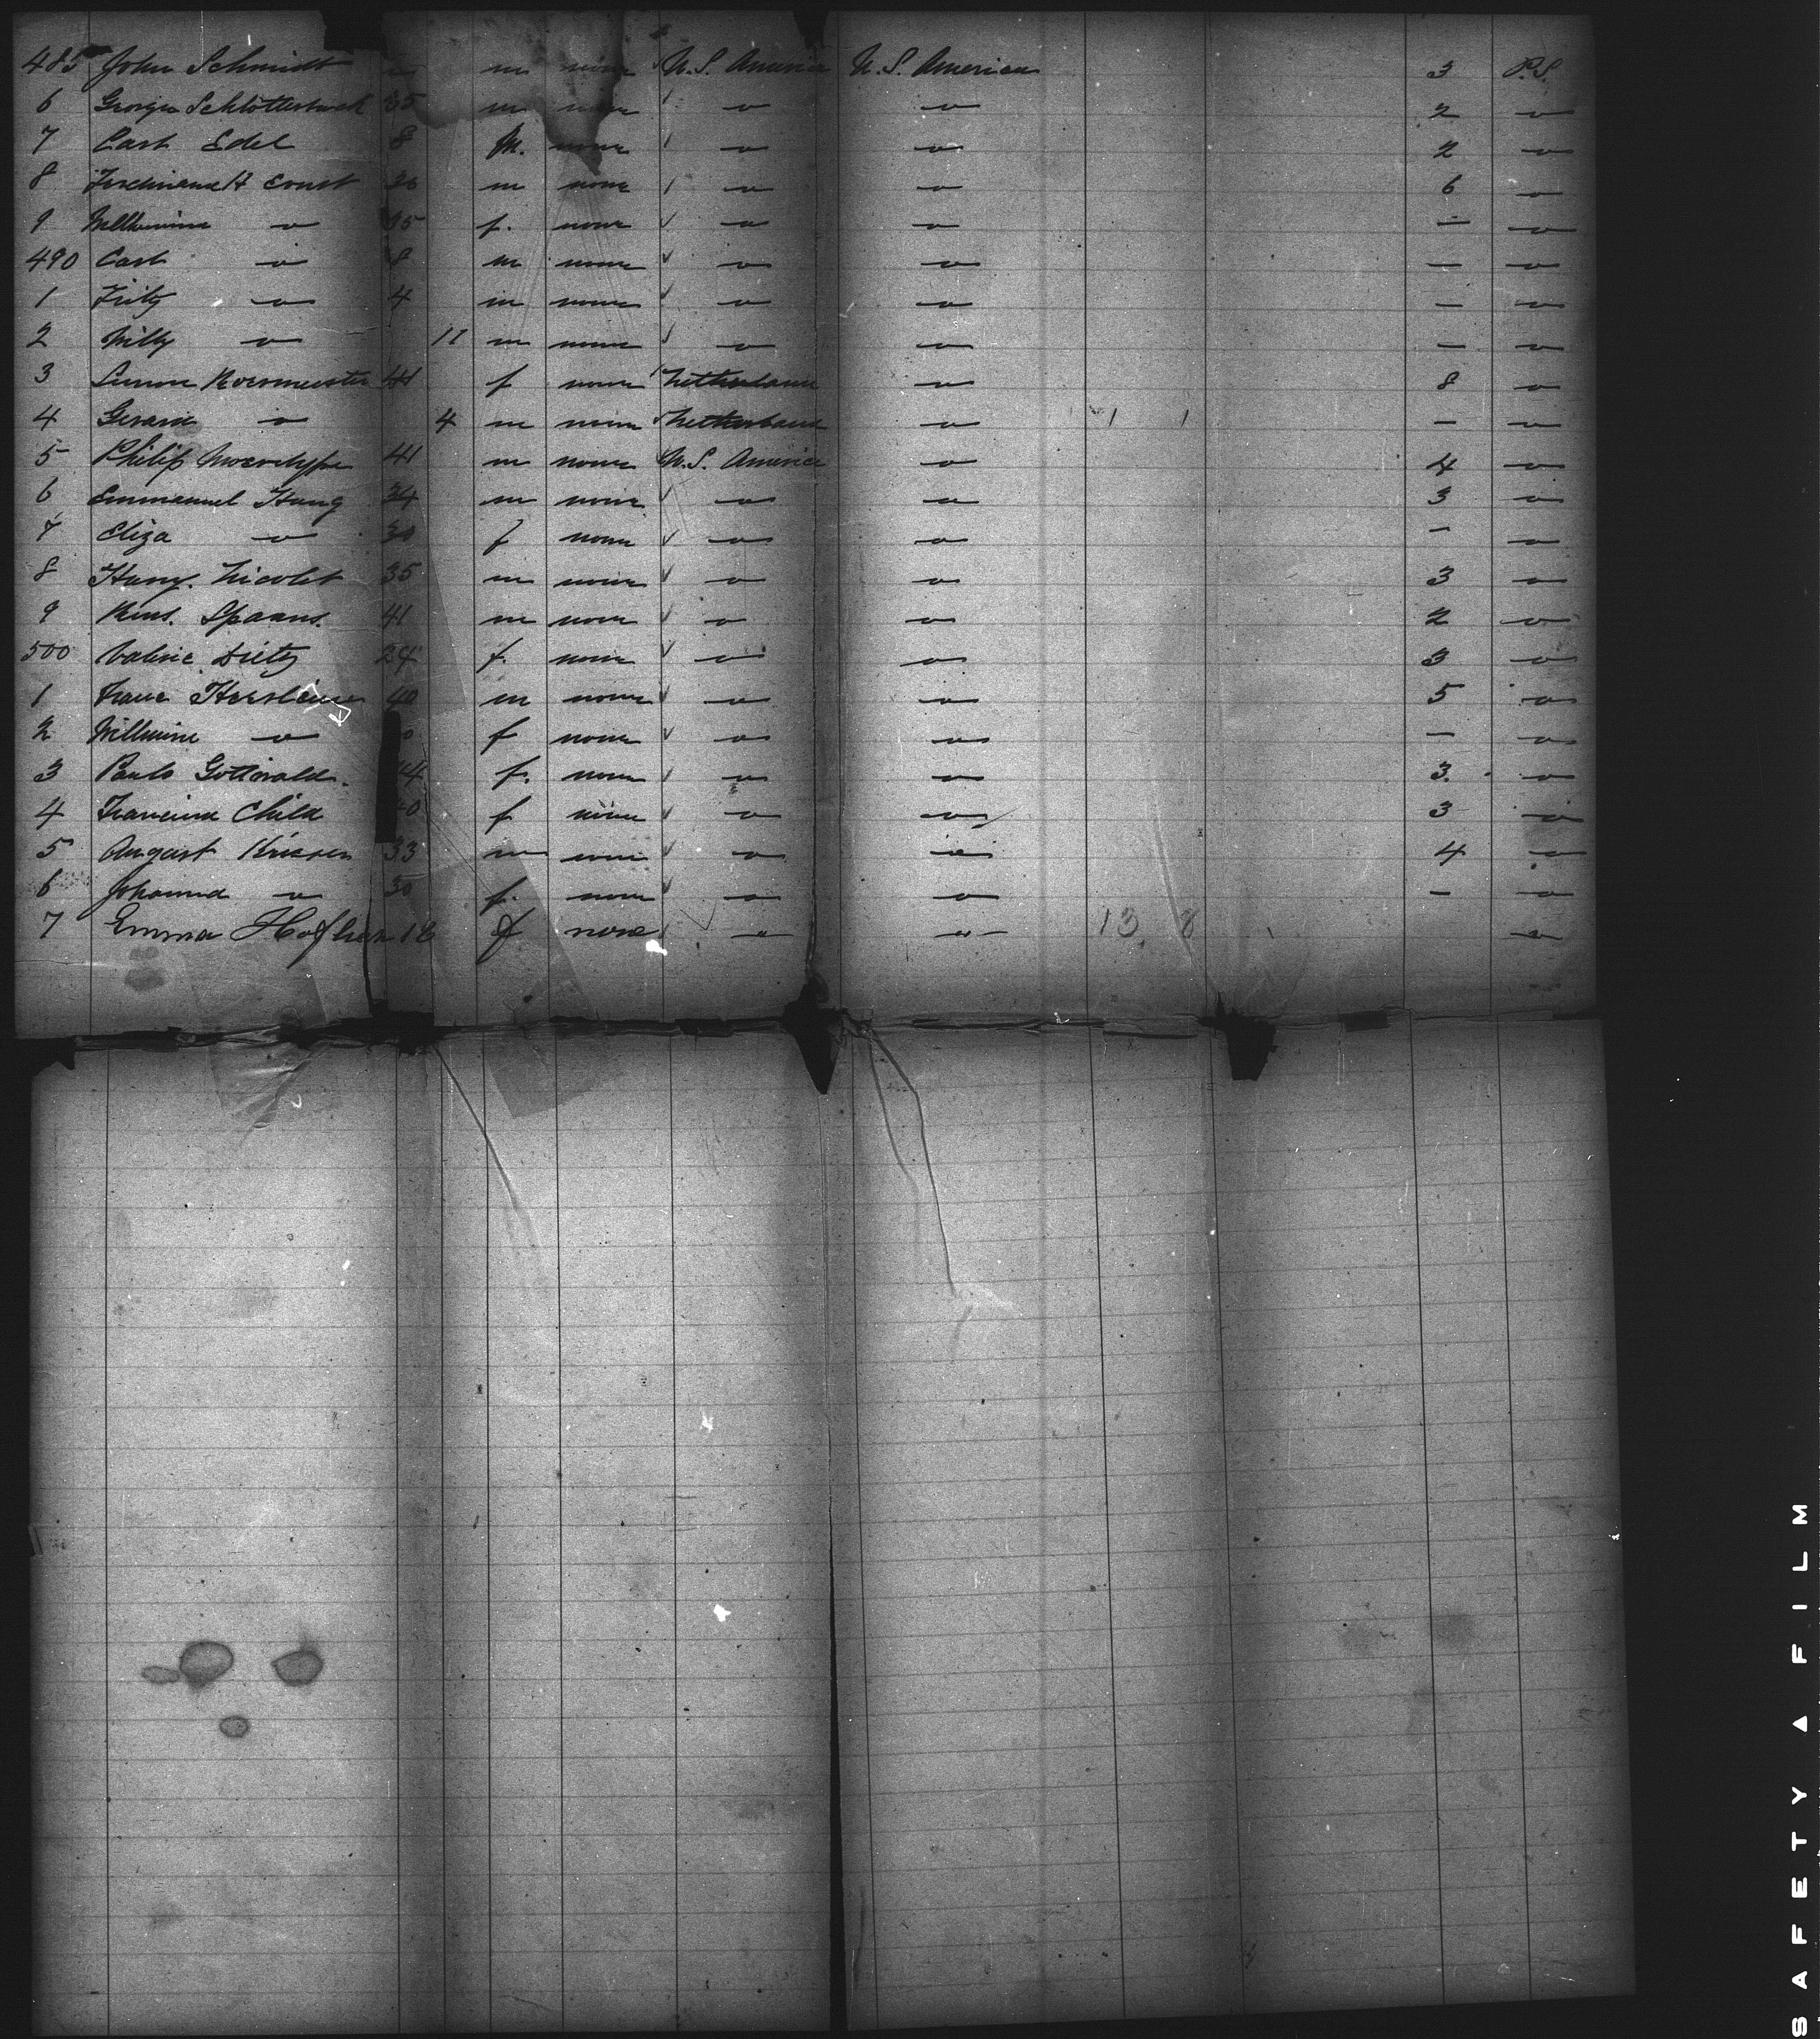 485 John Schmidt m none U.S. America U.S. American 3 P.S.
6 George Schlotterbeck 35 m none " " 2 "
7 Carl Edel 8 M. none " " 2 "
8 Ferdinand Ernst 36 m none " " 6 "
9 Wilhemine " 35 f. none " " — "
490 Carl " 8 m none " " — "
1 Fritz " 4 m none " " — "
2 Willy " 11 m none " " — "
3 41 f none Netherland " 8 "
4 Gerard " 4 m none Netherland " 1 1 — "
5 Philip 41 m none U.S. America " 4 "
6 Emmanuel Haug 34 m none " " 3 "
7 Eliza " 30 f none " " — "
8 Nicolet 35 m none " " 3 "
9 Spaans. 41 m none " " 2 "
500 Valerie Dietz 24 f. none " " 3 "
1 40 m none " " 5 "
2 Wilhmine " f none " " — "
3 Paula Gottwald. f. none " " 3. "
4 Child f none " " 3 "
5 August 33 m none " " 4 "
6 Johanna " 30 f. none " " — "
7 Emma 18 f none " " 13 8 "
SAFETY ▲ FILM